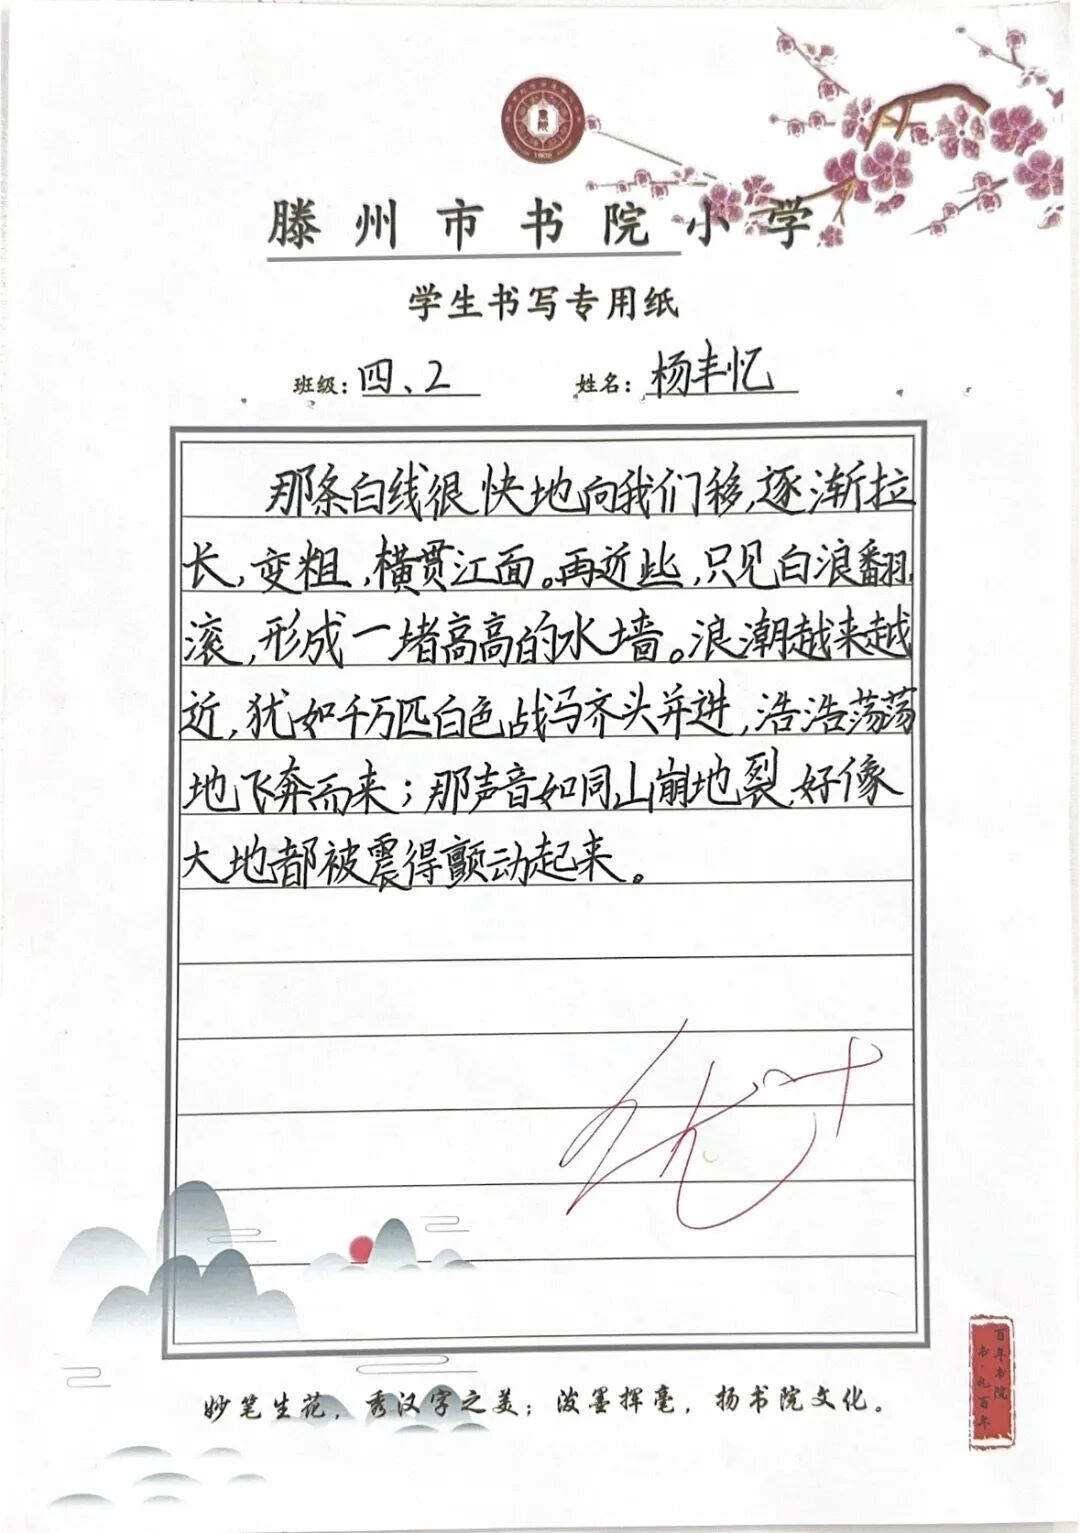 滕州市书院小学
学生书写专用纸
班级：四、2 姓名：杨丰忆
那条白线很快地向我们移，逐渐拉
长，变粗，横贯江面。再近些，只见白浪翻
滚，形成一堵高高的水墙。浪潮越来越
近，犹如千万匹白色战马齐头并进，浩浩荡荡
地飞奔而来；那声音如同山崩地裂，好像
大地都被震得颤动起来。
优+
妙笔生花，秀汉字之美；泼墨挥毫，扬书院文化。
百年书院
书·礼百年
1902